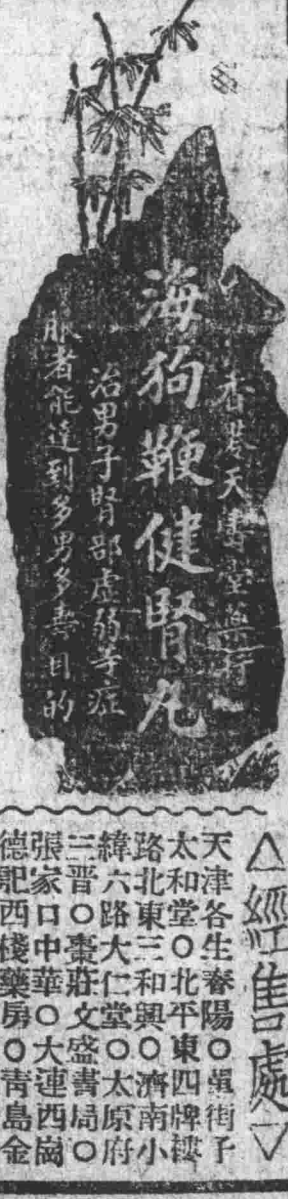 香港天壽堂藥行
海狗鞭健腎丸
治男子腎部虛弱等症
服者能達到多男多壽目的
△經售處▽
天津各生春陽○單街子
太和堂○北平東四牌樓
路北東三和興○濟南小
緯六路大仁堂○太原府
三晋○棗莊文盛書局○
張家口中華○大連西崗
德記西棧藥房○靑島金